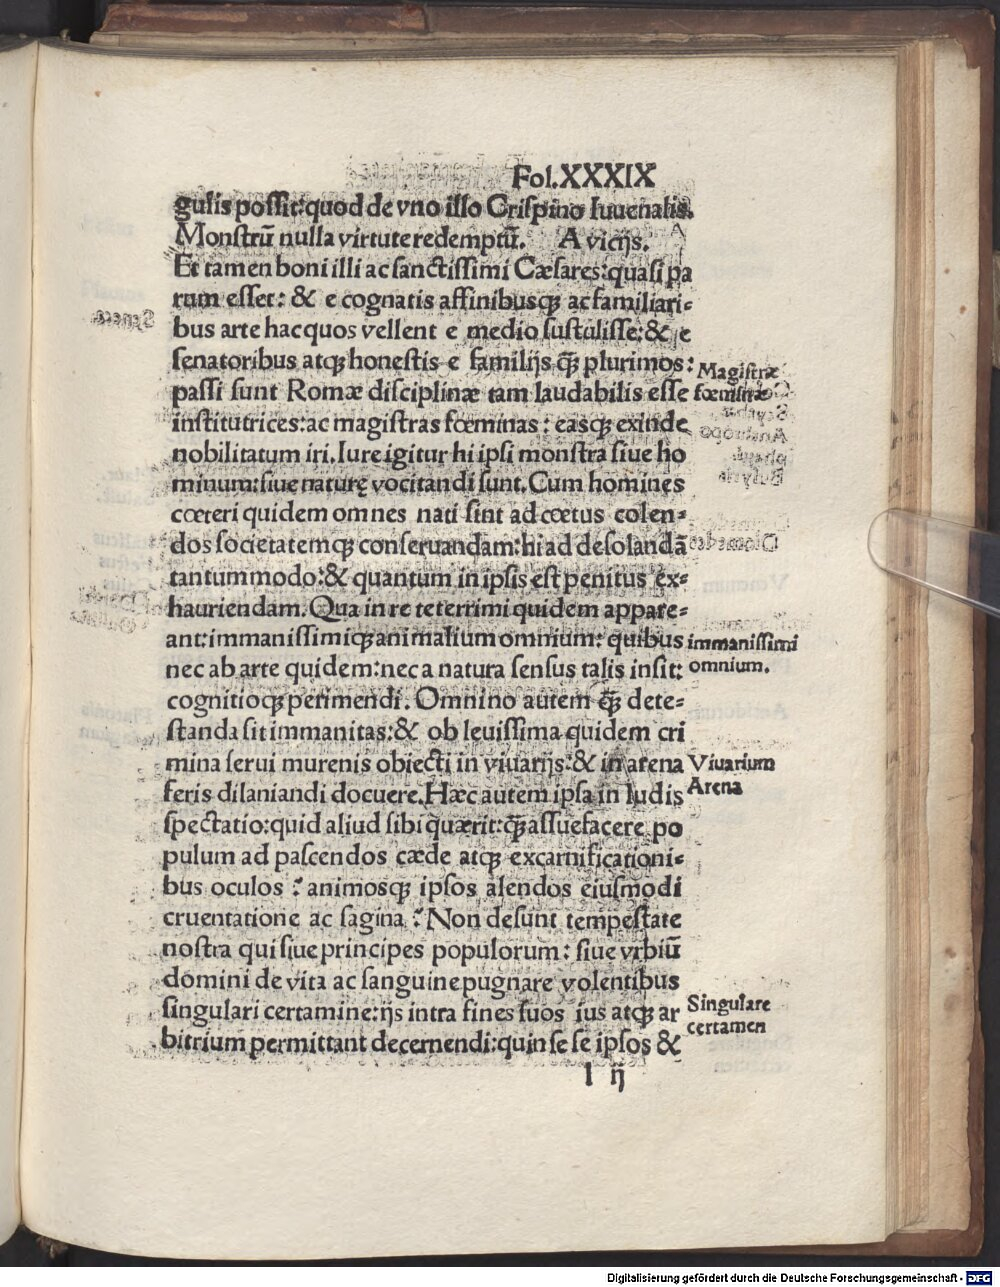 Fol.XXXIX
gulis possit:quod de vno illo Crispino Iuuenalis.
Monstrū nulla virtute redemptū. A vicijs.
Et tamen boni illi ac sanctissimi Cæsares:quasi pa
rum esset: & e cognatis affinibusqꝫ ac familiari-
bus arte hac quos vellent e medio sustulisse:& e
senatoribus atqꝫ honestis e familijs qꝫ̄ plurimos:
passi sunt Romæ disciplinæ tam laudabilis esse
institutrices:ac magistras fœminas: easqꝫ exinde
nobilitatum iri.Iure igitur hi ipsi monstra siue ho
minum:siue naturę vocitandi sunt.Cum homines
cœteri quidem omnes nati sint ad cœtus colen-
dos societatemqꝫ conseruandam:hi ad desolandā
tantummodo:& quantum in ipsis est penitus ex-
hauriendam. Qua in re teterrimi quidem appare-
ant:immanissimiqꝫ animalium omnium: quibus
nec ab arte quidem:nec a natura sensus talis insit:
cognitioqꝫ perimendi. Omnino autem qꝫ̄ dete-
standa sit immanitas:& ob leuissima quidem cri
mina serui murenis obiecti in viuarijs:& in arena
feris dilaniandi docuere.Hæc autem ipsa in ludis
spectatio:quid aliud sibi quærit:qꝫ̄ assuefacere po
pulum ad pascendos cæde atqꝫ excarnificationi-
bus oculos ? animosqꝫ ipsos alendos eiusmodi
cruentatione ac sagina ? Non desunt tempestate
nostra qui siue principes populorum: siue vrbiū
domini de vita ac sanguine pugnare volentibus
singulari certamine:ijs intra fines suos ius atqꝫ ar
bitrium permittant decernendi:quin se se ipsos &
l ij
Magistræ
fœminæ
immanissimi
omnium.
Viuarium
Arena
Singulare
certamen
Digitalisierung gefördert durch die Deutsche Forschungsgemeinschaft - DFG